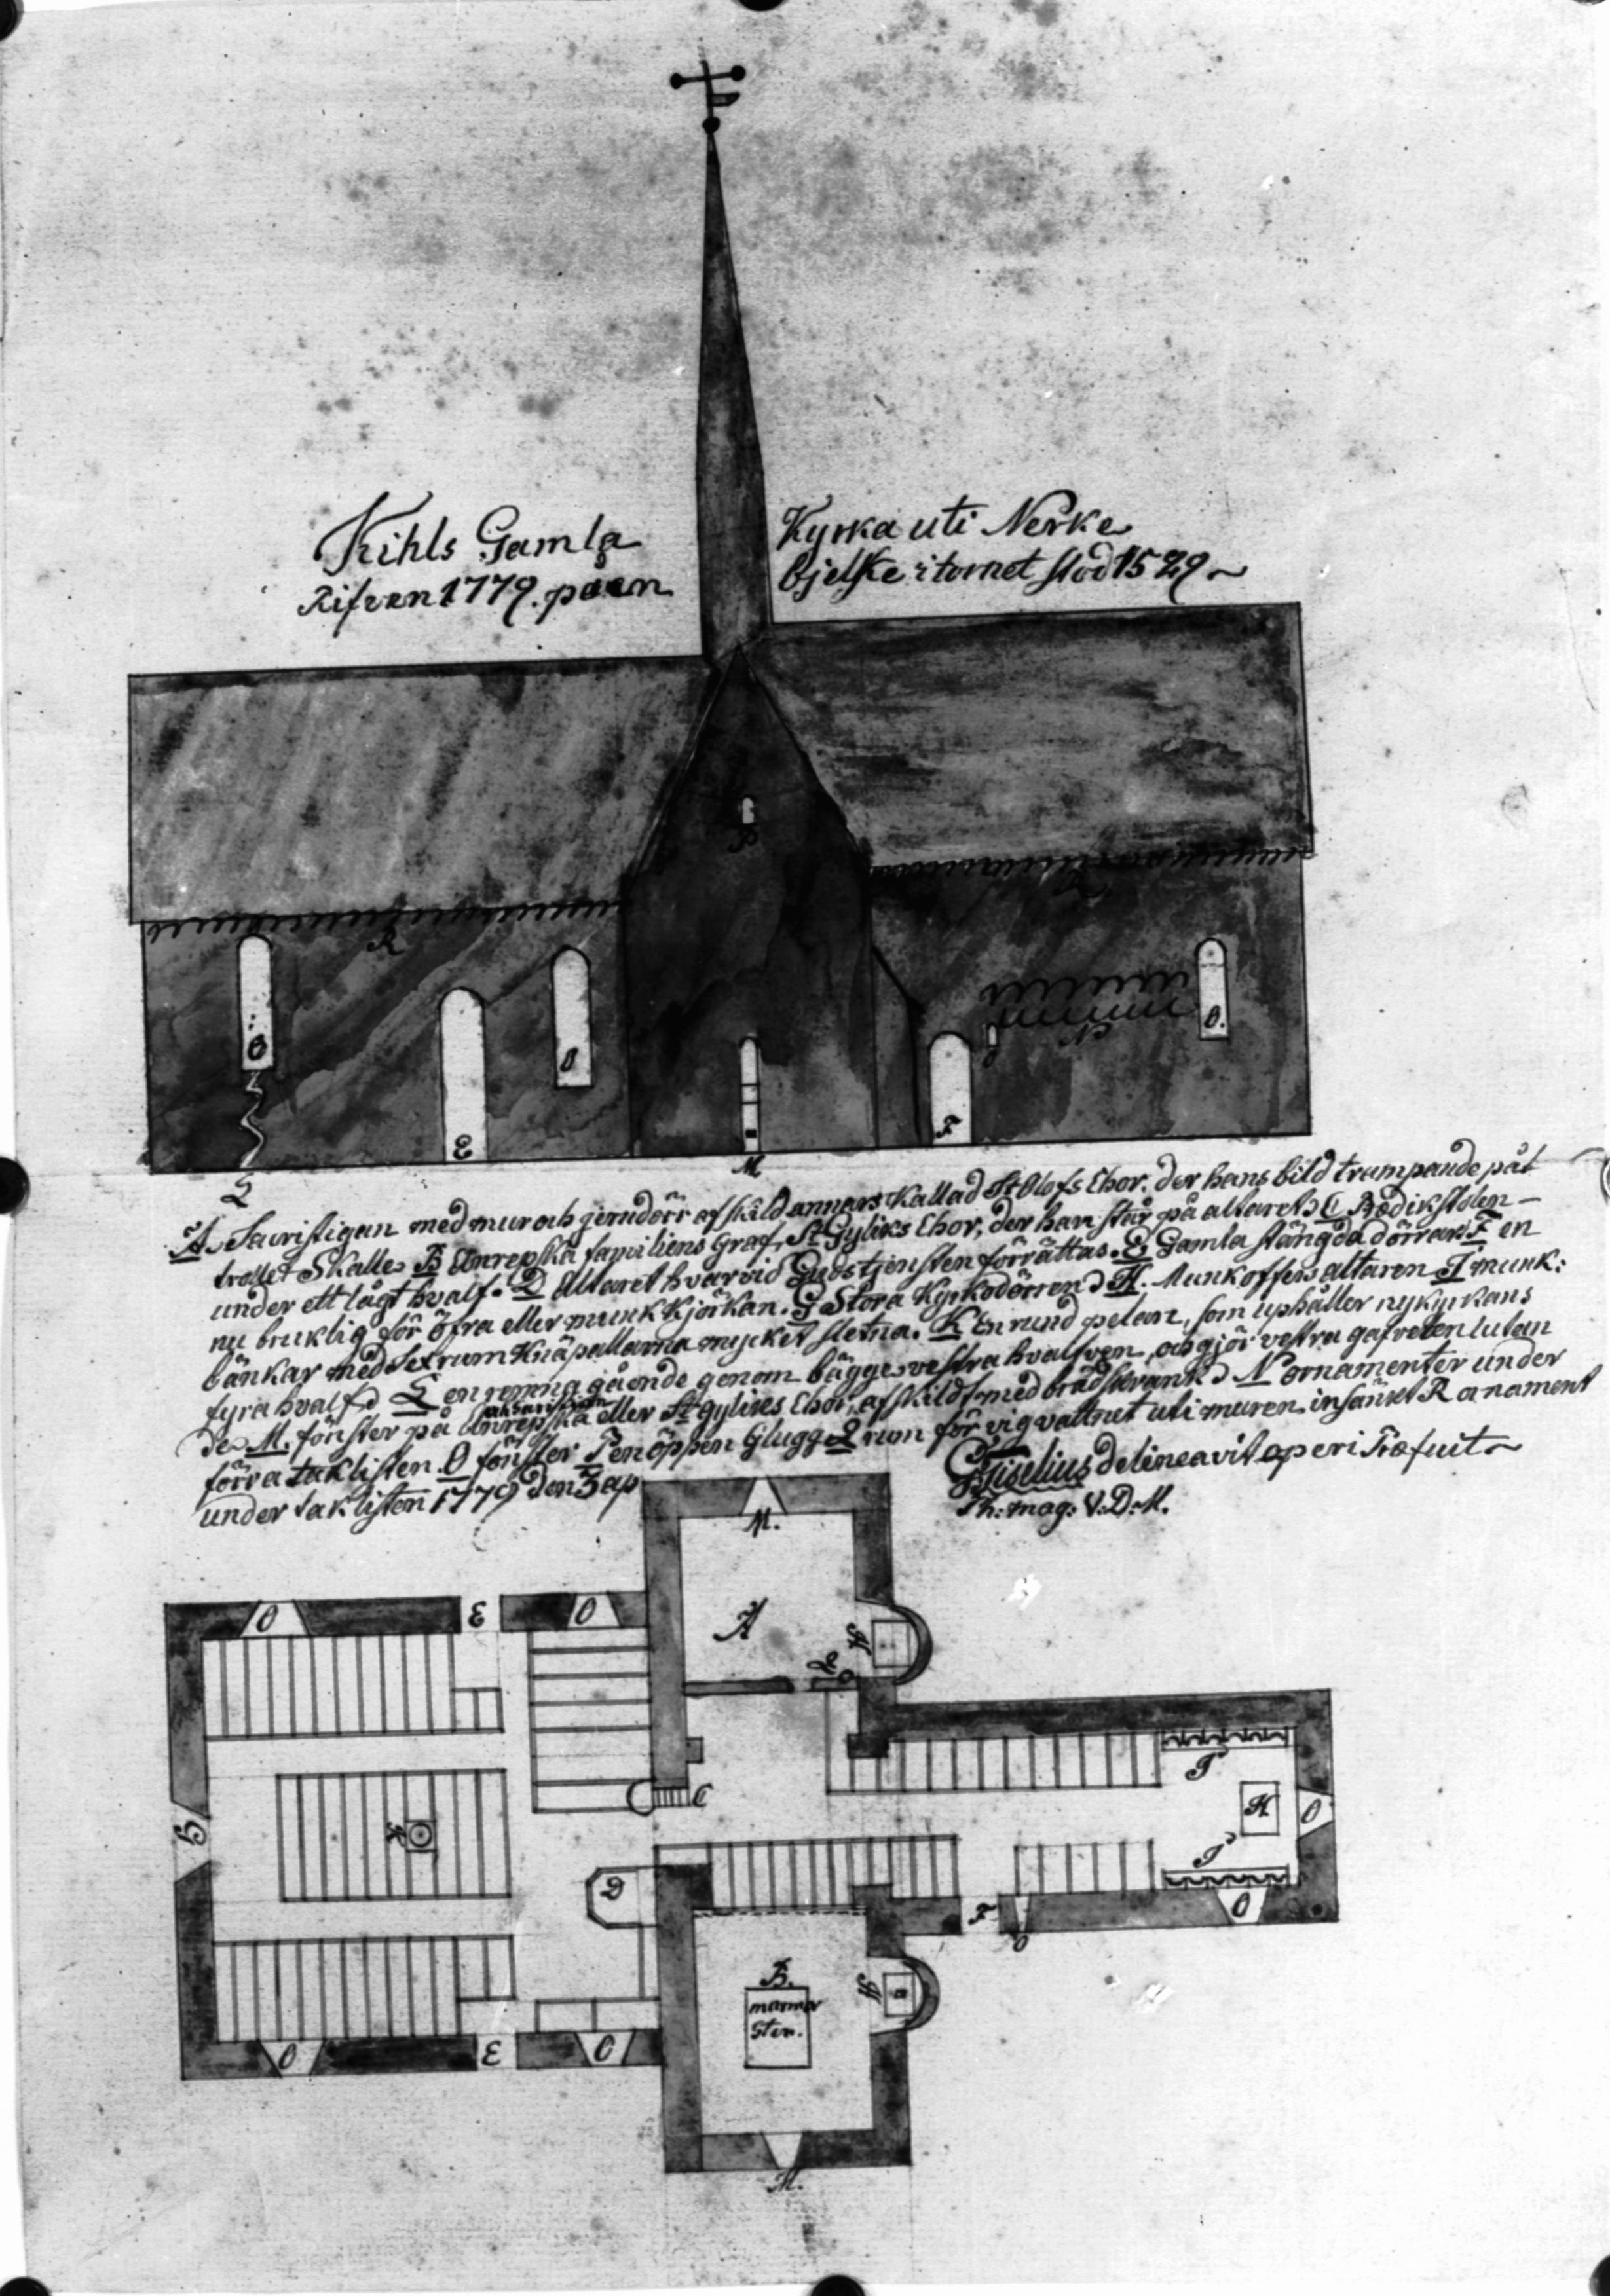 Kihls Gamla Kyrka uti Nerke
Rifven 1779. på en bjelke i tornet stod 1529
P
R
R
N
O
O
O
O.
E
F
L
M
A. Sacristigan med mur och jerndörr afskild annars kallad St Olofs Chor. der hans bild trampande på et
trollets Skalle. B Anrepska familiens Graf, St Gyliks Chor, der han står på altaret. C Predikstolen
under ett lågt hvalf. D Altaret hvarvid Gudstjensten förrättas. E Gamla stängda dörrar F en
nu bruklig för öfra eller munk kjörkan. G Stora Kyrkodörren. H. Munkoffers altaren I munk:
bänkar med Sexrum Knäpallarna mycket sletna. K En rund pelare, som uphåller nykyrkans
fyra hvalf. L en remna gående genom bägge vestra hvalfven, och gjör vestra gafvelen lutan
de. M. fönster på sakeristigan Anrepska eller St gylixs Chor, afskildt med brädskrank. N ornamenter under
förra taklisten. O fönster P en öppen Glugg. Q rum för vigvattnet uti muren insänkt R ornament
under taklisten 1779 den 3 ap
Giselius delineavit operi Præfuit
Ph: mag: V: D: M.
M.
A
H
Q
O
E
O
C
G
K
D
I
H
O
I
O
F
O
B.
marmor
Sten.
H
O
E
O
M.